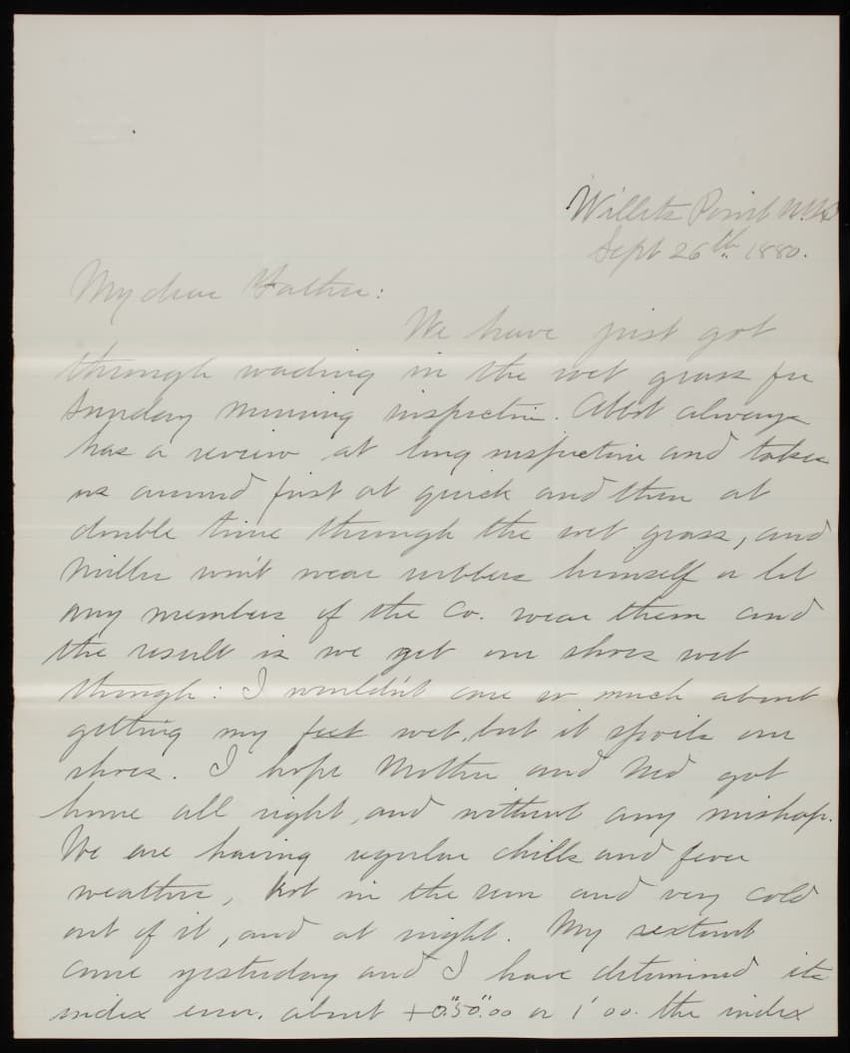 Willets Point N.Y.
Sept 26th. 1880.
My dear Father:
We have just got
through wading in the wet grass for
Sunday morning inspection. Abbot always
has a review at long inspection and takes
us around first at quick and then at
double time through the wet grass, and
Miller won't wear rubbers himself or let
any members of the Co. wear them and
the result is we get our shoes wet
through: I wouldn't care so much about
getting my feet wet, but it spoils our
shoes. I hope Mother and Ned got
home all right, and without any mishap.
We are having regular chills and fever
weather, hot in the sun and very cold
out of it, and at night. My sextant
came yesterday and I have determined its
index error. about +0.'50."00 or 1' 00. the index